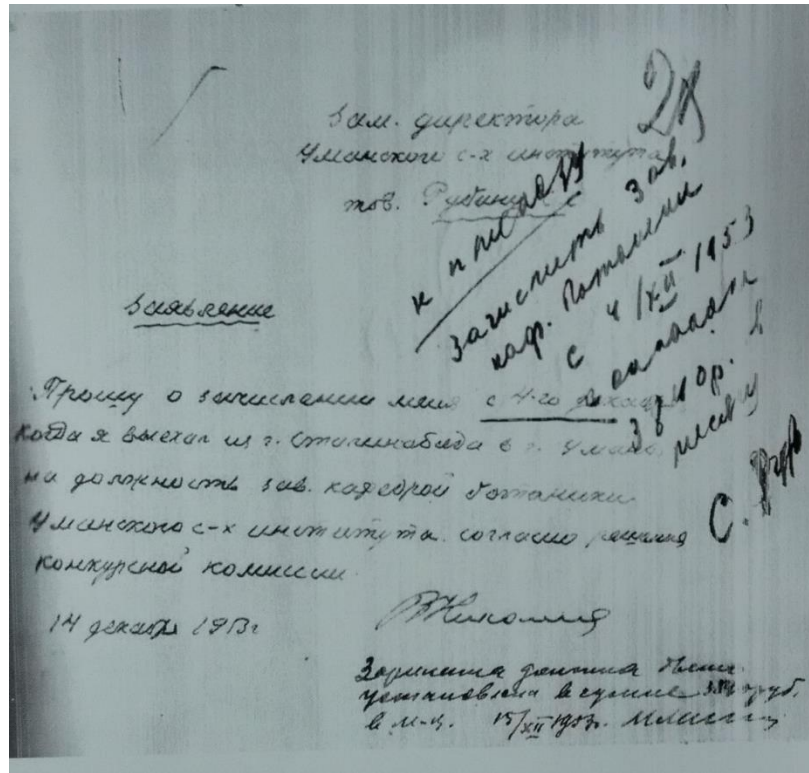 24
Зам. директора
Уманского с-х института
тов.
к приказу
Зачислить зав.
каф. ботаники
с 4/XII 1953
с окладом
в
месяц
С.
Заявление
Прошу о зачислении меня с 4-го декабря
когда я выехал из г. Сталинабада в г. Умань
на должность зав. кафедрой ботаники
Уманского с-х института согласно решения
конкурсной комиссии
14 декабря 1953г
Зарплата должна быть
установлена в сумме руб.
в м-ц. 15/XII 1953г.